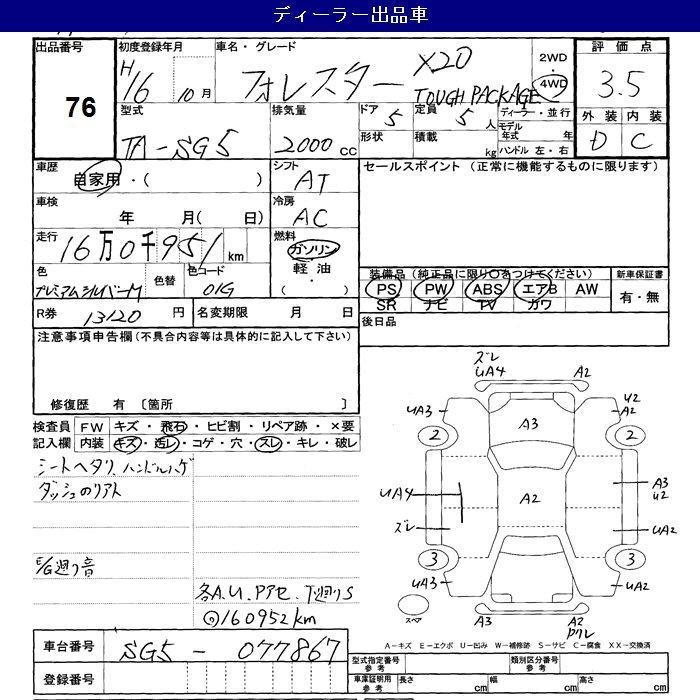 ディーラー出品車
出品番号
76
初度登録年月
H16 10月
車名・グレード
フォレスター X20
TOUGH PACKAGE
2WD
4WD
評価点
3.5
外装 内装
D C
型式
TA-SG5
排気量
2000 cc
ドア 5
定員 5 人
ディーラー・並行
形状
積載 kg
モデル年式 年
ハンドル 左・右
車歴
自家用・( )
シフト
AT
セールスポイント (正常に機能するものに限ります)
車検
年 月( 日)
冷房
AC
走行
16万0千951km
燃料
ガソリン
軽油・
( )
色
プレミアムシルバーM
色替
色コード
01G
装備品 (純正品に限り○をつけてください)
PS PW ABS エアB AW
SR ナビ TV カワ
新車保証書
有・無
R券 13120 円
名変期限 月 日
後日品
注意事項申告欄(不具合内容等は具体的に記入して下さい)
修復歴 有 〔箇所 〕
検査員記入欄
FW キズ・飛石・ヒビ割・リペア跡・×要
内装 キズ・汚レ・コゲ・穴・スレ・キレ・破レ
シートヘタリ、ハンドルハゲ
ダッシュのリアト
E/G廻り音
各A.U.Pアセ.下廻りS
◎160952km
ズレ
UA4
A2
UA3
U2
A2
2
A3
2
UA4
A2
A3
U2
ズレ
UA2
3
3
UA3
UA2
スペア
A3
A2
Pワレ
車台番号 SG5 - 077867
登録番号
A-キズ E-エクボ U-凹み W-補修跡 S-サビ C-腐食 XX-交換済
型式指定番号 参考
類別区分番号 参考
車庫証明用 参考
長さ cm
幅 cm
高さ cm